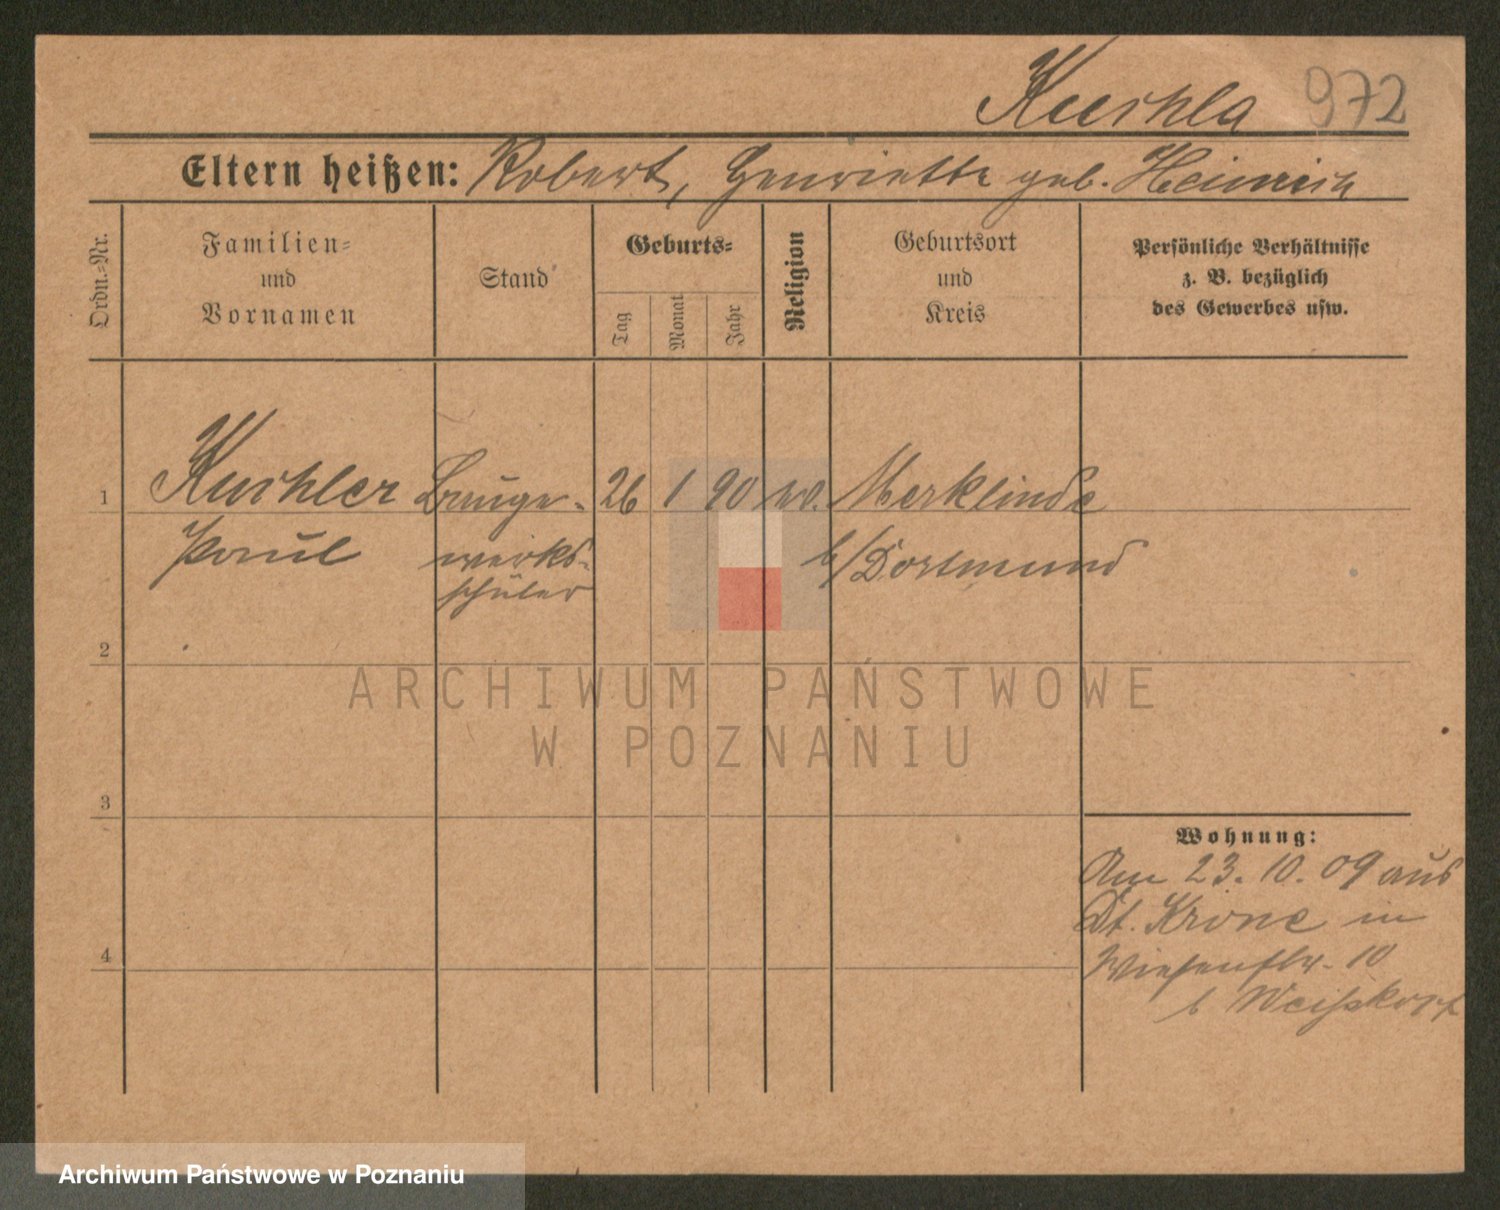 Kuchla 972
Eltern heißen: Robert, Henriette geb. Heinrich
Ordn.-Nr.
Familien- und Vornamen
Stand
Geburts-
Tag
Monat
Jahr
Religion
Geburtsort und Kreis
Persönliche Verhältnisse
z. B. bezüglich
des Gewerbes usw.
1 Kuchler Bauge- 26 1 90 ev. Merklinde
Paul werks- b/Dortmund
schüler
2
ARCHIWUM PAŃSTWOWE
W POZNANIU
3
Wohnung:
Am 23. 10. 09 aus
Dt. Krone in
4
Wiesenstr. 10
b
Archiwum Państwowe w Poznaniu